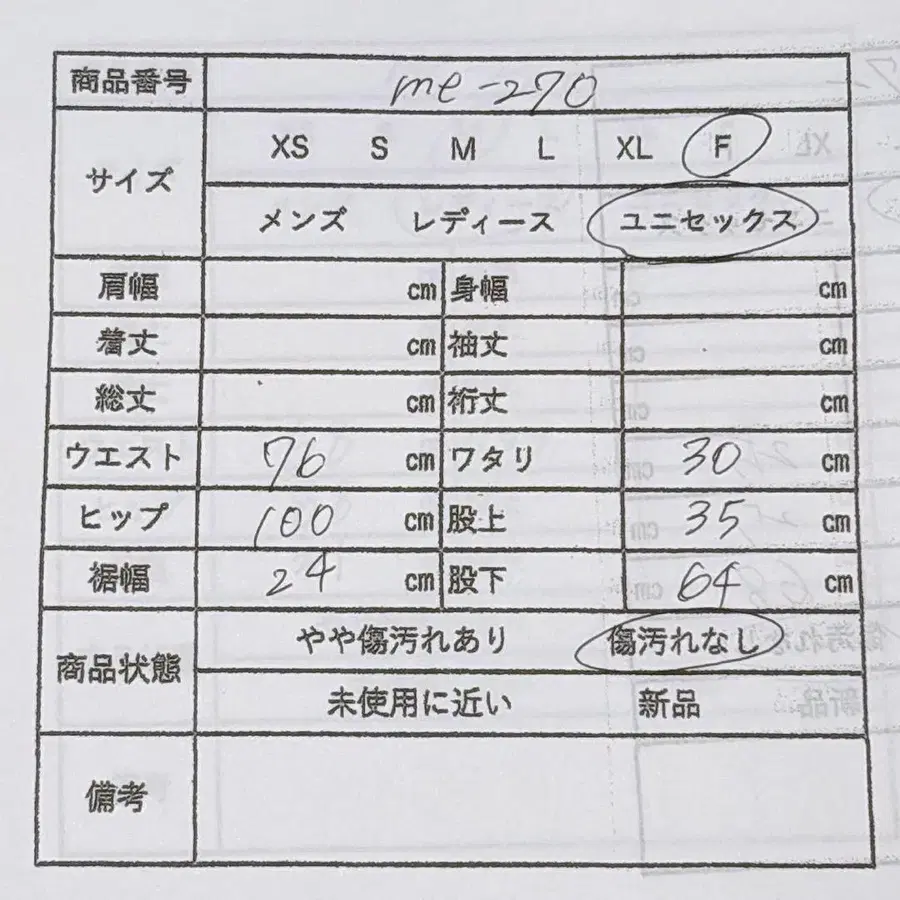 商品番号 me-270
サイズ XS S M L XL F
メンズ レディース ユニセックス
肩幅 cm 身幅 cm
着丈 cm 袖丈 cm
総丈 cm 裄丈 cm
ウエスト 76 cm ワタリ 30 cm
ヒップ 100 cm 股上 35 cm
裾幅 24 cm 股下 64 cm
商品状態 やや傷汚れあり 傷汚れなし
未使用に近い 新品
備考